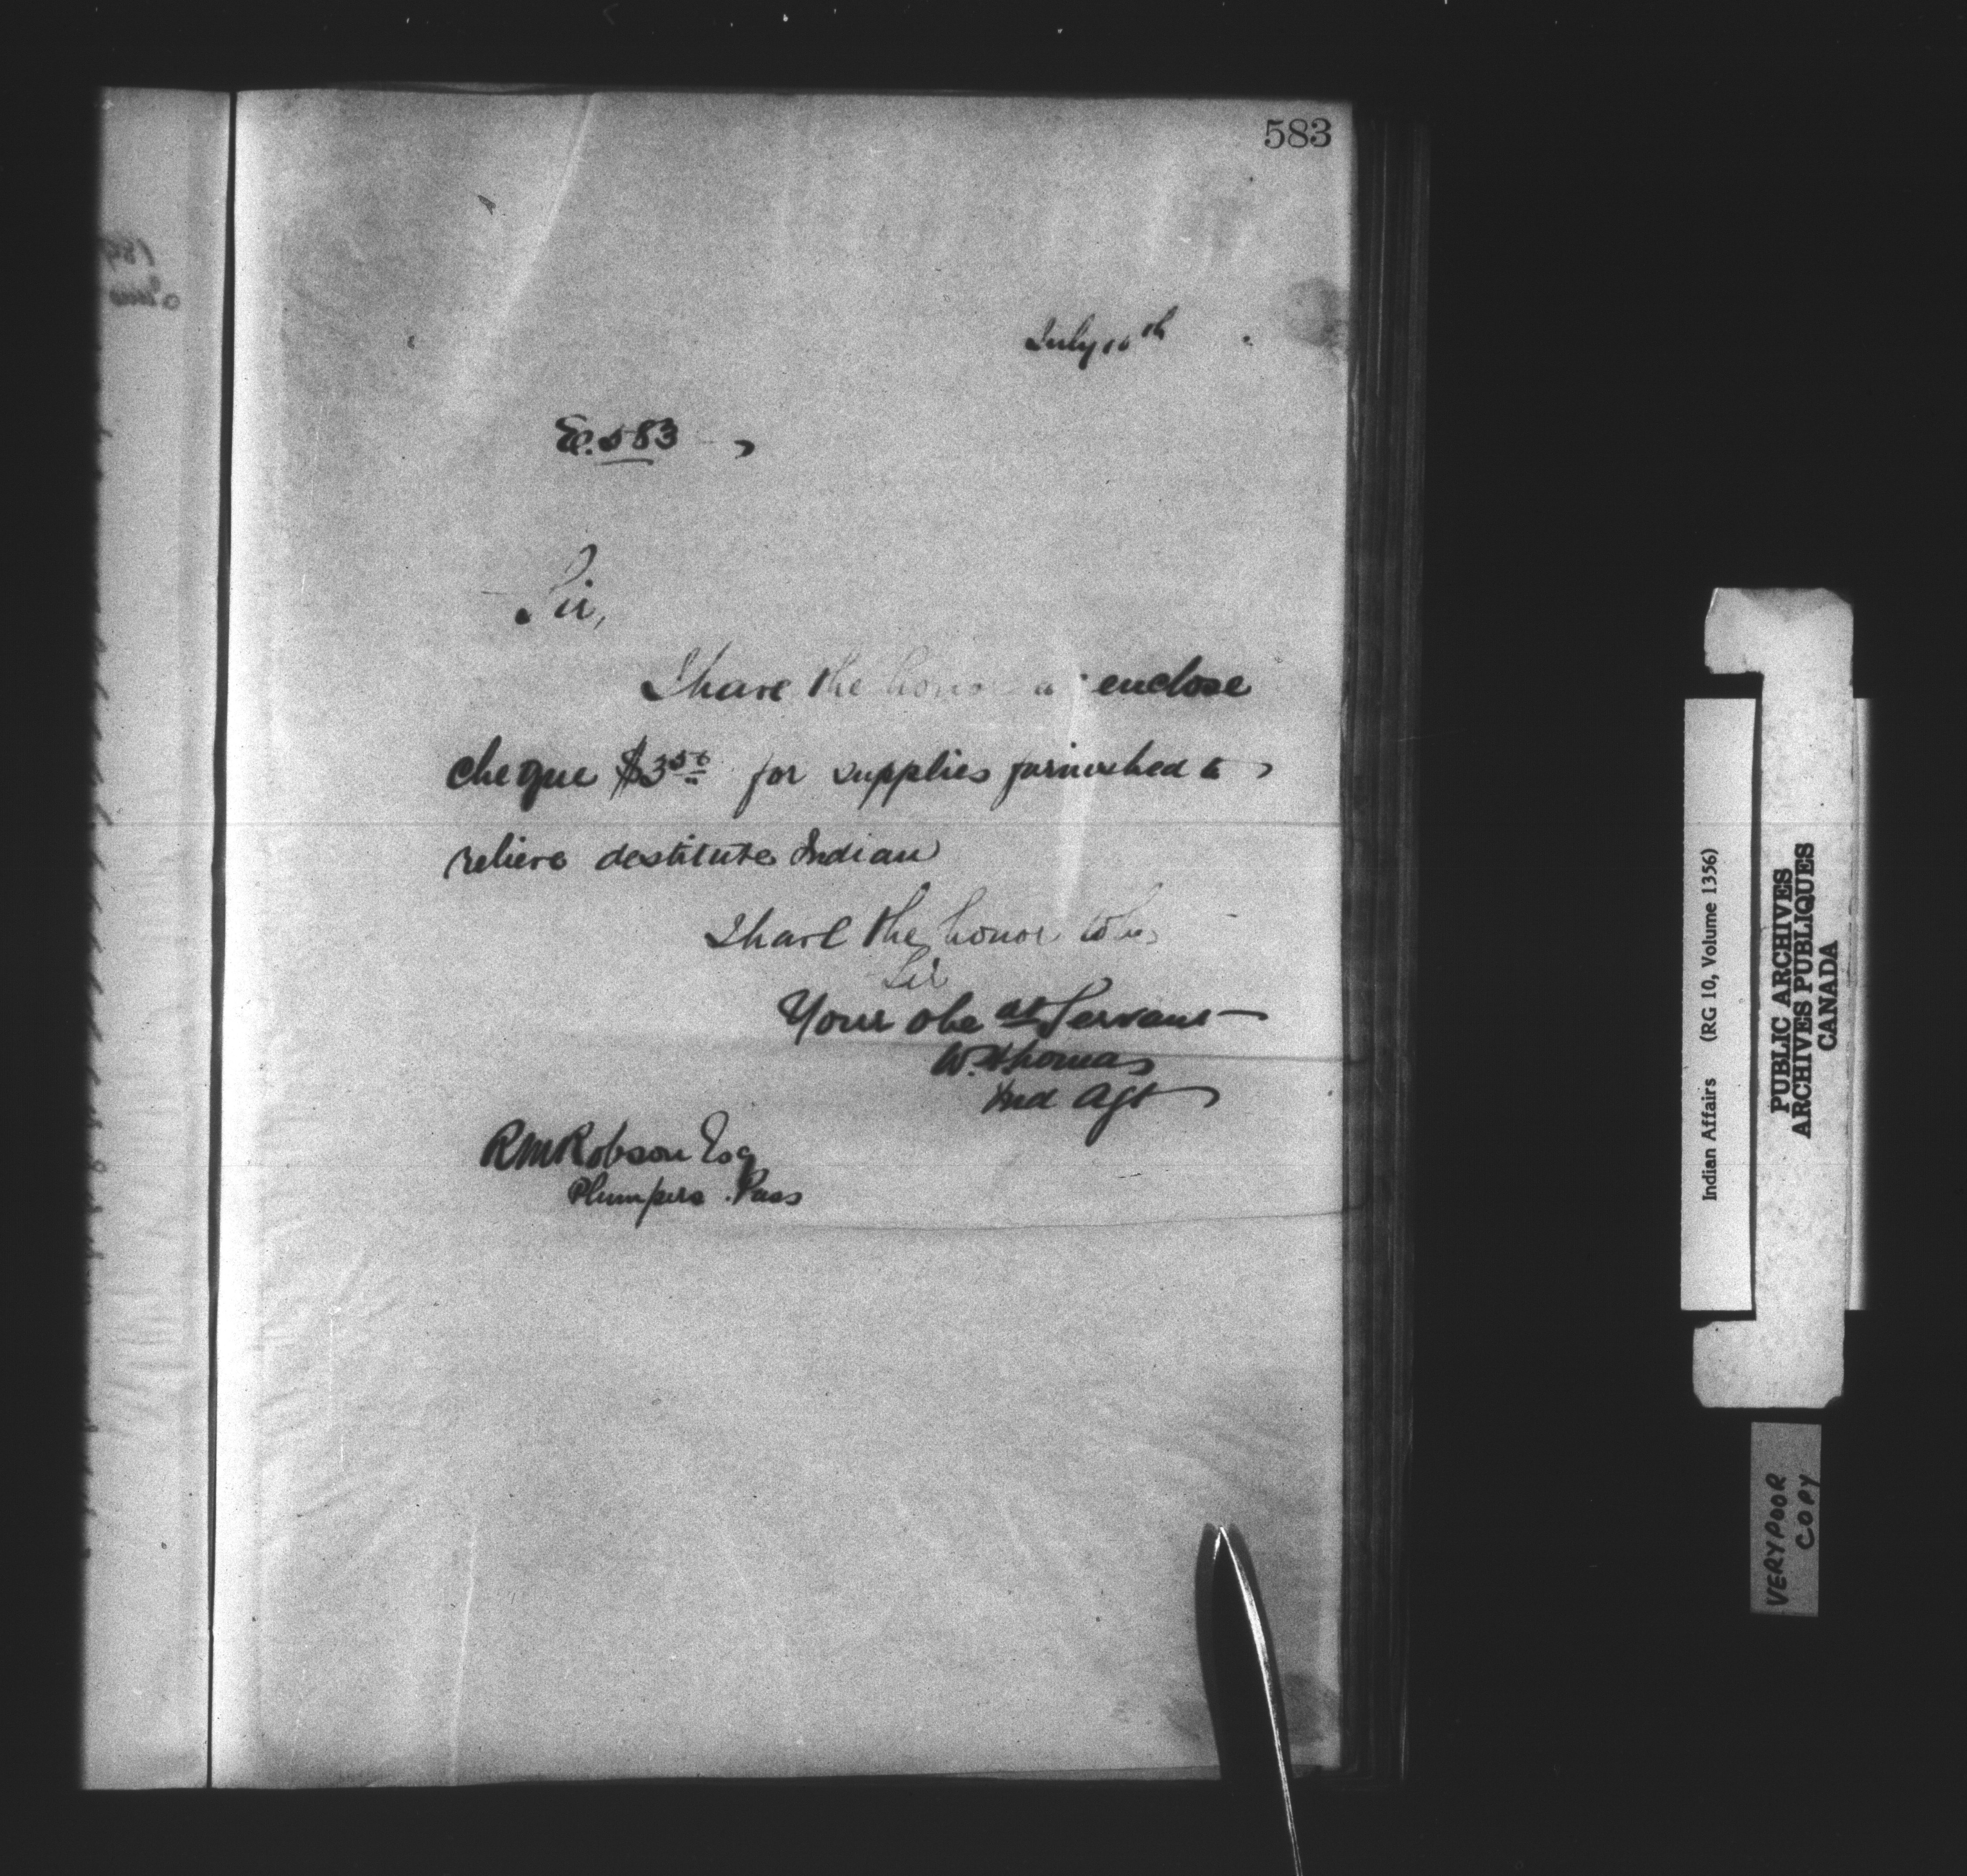 583
July 10th
Sir,
I have the honor to enclose
cheque $3 50 for supplies furnished to
relieve destitute Indian
I have the honor to be
Sir
Your obe dt Servant
W. H Lomas
Ind Agt
R M Robson Esq
Plumpers Pass
Indian Affairs (RG 10, Volume 1356)
PUBLIC ARCHIVES
ARCHIVES PUBLIQUES
CANADA
VERY POOR
COPY